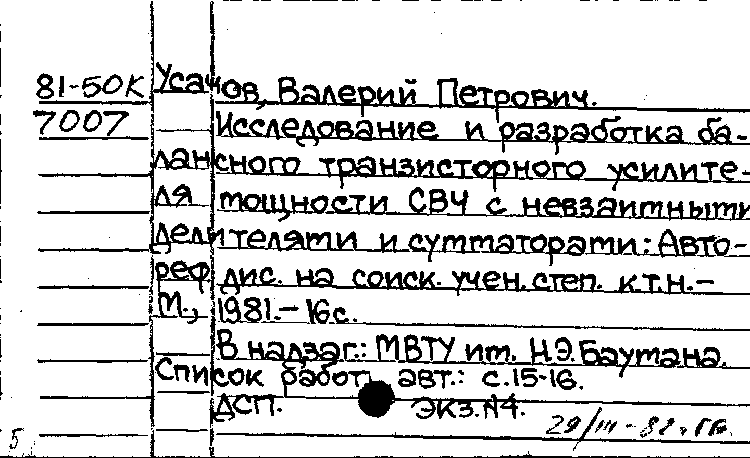 81-50К Усачов, Валерий Петрович.
7007 Исследование и разработка ба-
лансного транзисторного усилите-
ля мощности СВЧ с невзаимными
делителями и сумматорами: Авто-
реф. дис. на соиск. учен. степ. к.т.н.-
М., 1981.-16с.
В надзаг.: МВТУ им. Н.Э.Баумана.
Список работ авт.: с.15-16.
ДСП. ЭКЗ.N4.
5 29/III-82.